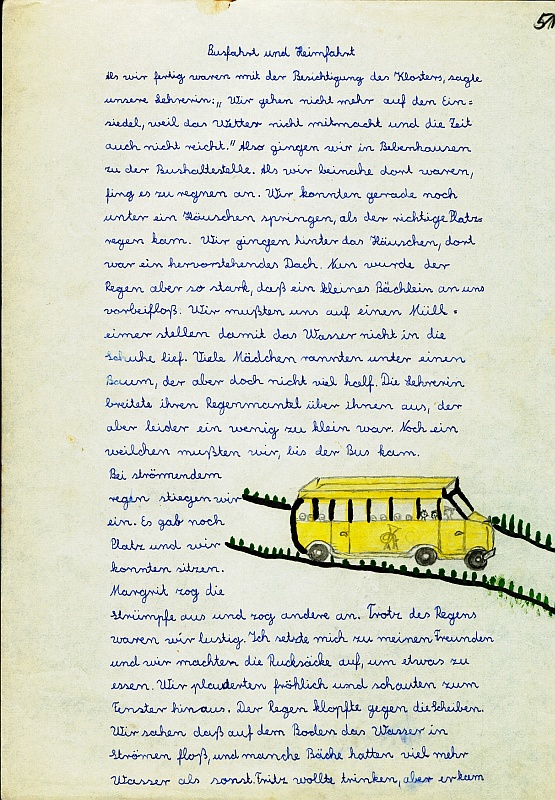 51
Busfahrt und Heimfahrt
Als wir fertig waren mit der Besichtigung des Klosters, sagte
unsere Lehrerin: „Wir gehen nicht mehr auf den Ein=
siedel, weil das Wetter nicht mitmacht und die Zeit
auch nicht reicht." Also gingen wir in Bebenhausen
zu der Bushaltestelle. Als wir beinahe dort waren,
fing es zu regnen an. Wir konnten gerade noch
unter ein Häuschen springen, als der richtige Platz=
regen kam. Wir gingen hinter das Häuschen, dort
war ein hervorstehendes Dach. Nun wurde der
Regen aber so stark, daß ein kleines Bächlein an uns
vorbeifloß. Wir mußten uns auf einen Müll=
eimer stellen damit das Wasser nicht in die
Schuhe lief. Viele Mädchen rannten unter einen
Baum, der aber doch nicht viel half. Die Lehrerin
breitete ihren Regenmantel über ihnen aus, der
aber leider ein wenig zu klein war. Noch ein
weilchen mußten wir, bis der Bus kam.
Bei strömendem
regen stiegen wir
ein. Es gab noch
Platz und wir
konnten sitzen.
Margrit zog die
Strümpfe aus und zog andere an. Trotz des Regens
waren wir lustig. Ich setzte mich zu meinen Freunden
und wir machten die Rucksäcke auf, um etwas zu
essen. Wir plauderten fröhlich und schauten zum
Fenster hinaus. Der Regen klopfte gegen die Scheiben.
Wir sahen daß auf dem Boden das Wasser in
Strömen floß, und manche Bäche hatten viel mehr
Wasser als sonst. Fritz wollte trinken, aber er kam